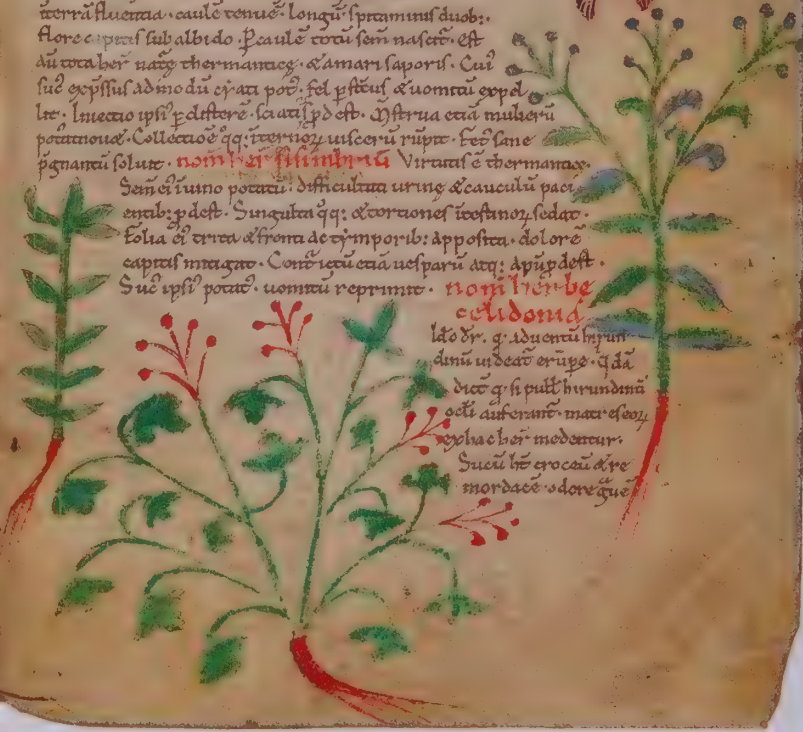 terrā fluentia · caulē tenuē · longū spitaminis duob:·
flore capitis subalbido · P caulē totū sem̄ nascit᷑ · Est
aū tota her̄ natę thermanticę · & amari saporis · Cui᷒
suc᷒ exp̄ssus ad modū cyati pot᷒ · fel & uomitū expel
lit · Iniectio ipsi᷒ p · sciatis p̄dest · Mēstrua etiā mulierū
· Collectioē q̄q · internoꝝ uiscerū rūpit ·
p̄gnantū soluit · nom̄ her̄ sisimbriū Virtutis ē thermanticę·
Sem̄ ei᷒ ī uino potatū · difficultati urinę & cauculū paci
entib: p̄dest · Singultū q̄q: & tortiones ītestinoꝝ sedat ·
Folia ei᷒ trita & fronti ac tȳmporib: apposita · dolorē
capitis mitigat · Cont᷑ ictū etiā uesparū atq: apū p̄dest ·
Suc᷒ ipsi᷒ potat᷒ · uomitū reprimit · nom̄ herbę
celidonia
Ido dr̄ · q᷒ aduentū hirun
dinū uideat᷑ erūpe · q̄dā
dict̄ q᷒ si pull̄ hirundinū
oc̄li auferant᷑ · matres eoꝝ
ex hac her̄ medentur ·
Sucū ht̄ croceū & re
mordacē · odore g᷑uē